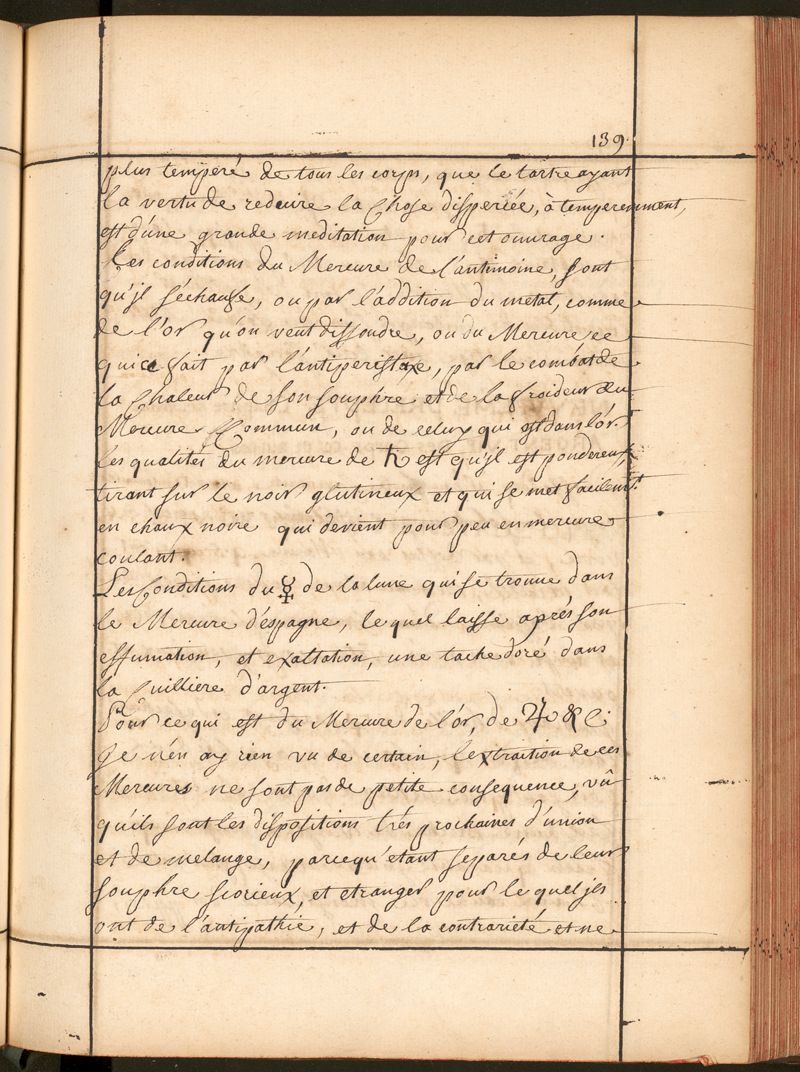 139.
plus temperé de tous les corps, que le tartre ayant
la vertu de reduire la Chose disperiée, à temperemment,
est d'une grande meditation pour cet ouvrage.
Les conditions du Mercure de l'antimoine, sont
qu'jl s'échaufe, ou par l'addition du metal, comme
de l'or qu'on veut dissoudre, ou du Mercure, ce
qui ce fait par l'antiperistaxe, par le combat de
la Chaleur de son souphre et de la froideur du
Mercure Commun, ou de celuy qui est dans l'or.
Les qualités du mercure de ♄ est qu'jl est pondereux,
tirant sur le noir glutineux et qui se met facilemt.
en chaux noire qui devient pour peu en mercure
coulant.
Les Conditions du ☿ de la lune qui se trouue dans
le Mercure d'espagne, le quel laisse aprés son
effumation, et exaltation, une tache doré dans
la Cuilliere d'argent.
Pour ce qui est du Mercure de l'or, de ♃ &
Je n'en ay rien vu de certain, l'extraition de ces
Mercures ne sont pas de petite consequence, vû
qu'ils sont les dispositions trés prochaines d'union
et de melange, parcequ'etant separés de leur
souphre scorieux, et etranger pour le quel jls
ont de l'antipathie, et de la contrarieté et ne